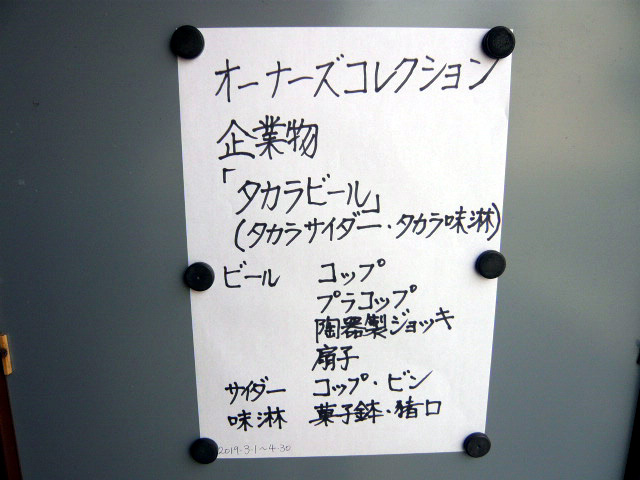 オーナーズコレクション
企業物
「タカラビール」
(タカラサイダー・タカラ味淋)
ビール コップ
プラコップ
陶器製ジョッキ
扇子
サイダー コップ・ビン
味淋 菓子鉢・猪口
2019・3・1～4・30